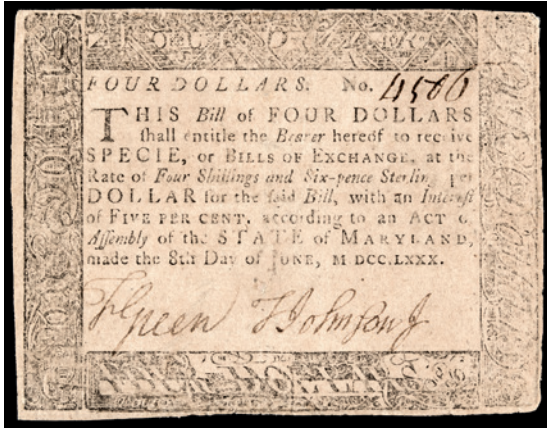 FOUR DOLLARS. No. 4500
THIS Bill of FOUR DOLLARS
shall entitle the Bearer hereof to receive
SPECIE, or BILLS OF EXCHANGE, at the
Rate of Four Shillings and Six-pence Sterlin per
DOLLAR for the said Bill, with an Interest
of FIVE PER CENT. according to an ACT o
Assembly of the STATE of MARYLAND,
made the 8th Day of JUNE, M DCC.LXXX.
F Green T Johnson J